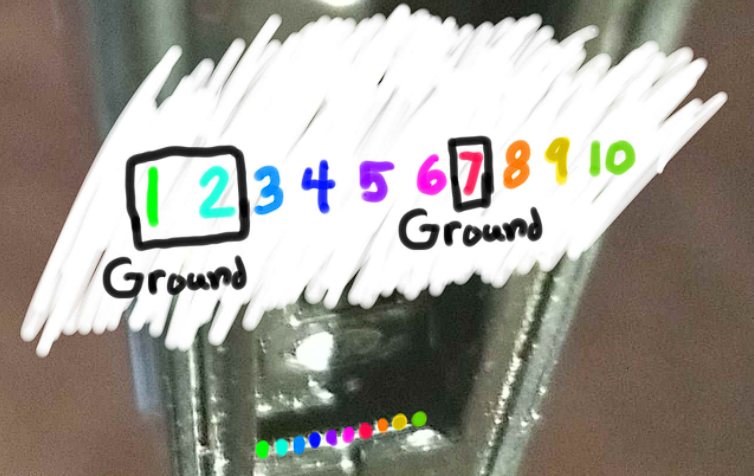 1 2 3 4 5 6 7 8 9 10
Ground
Ground